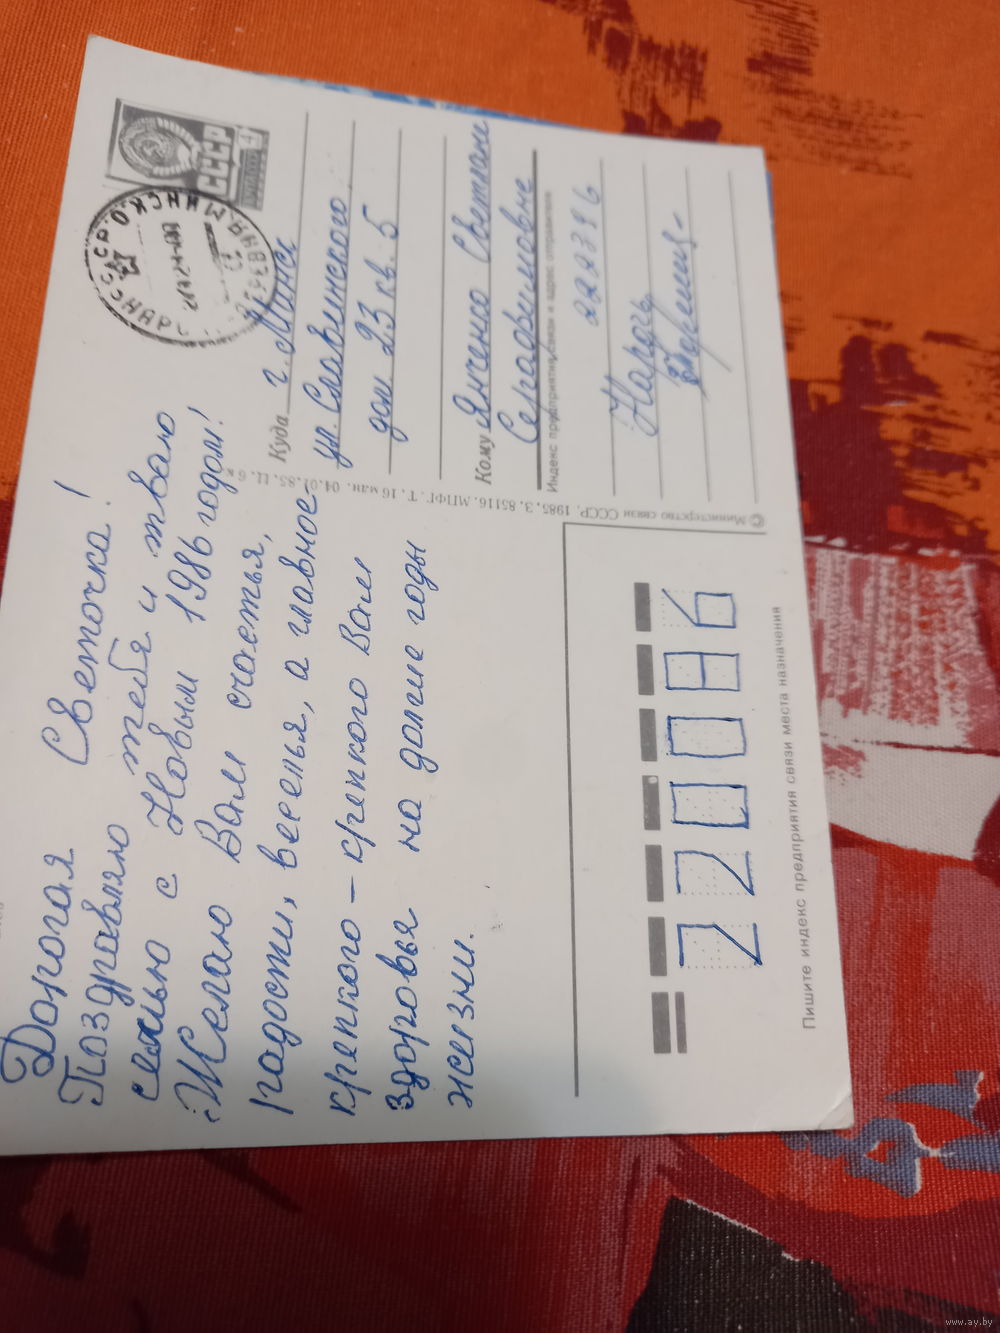 Дорогая Светочка!
Поздравляю тебя и твою
семью с Новым 1986 годом!
Желаю Вам счастья,
радости, веселья, а главное
крепкого – крепкого Вам
здоровья на долгие годы
жизни.
СССР
4
Куда г. Минск
ул. Славинского
дом 23 кв. 5
Кому Янченко Светлане
Серафимовне
Индекс предприятия связи и адрес отправителя
222396
Нарочь
© Министерство связи СССР, 1985. З. 85116. МПФГ. Т. 16 млн. 04.01.85. Ц. 6 к.
220086
Пишите индекс предприятия связи места назначения
www.ay.by